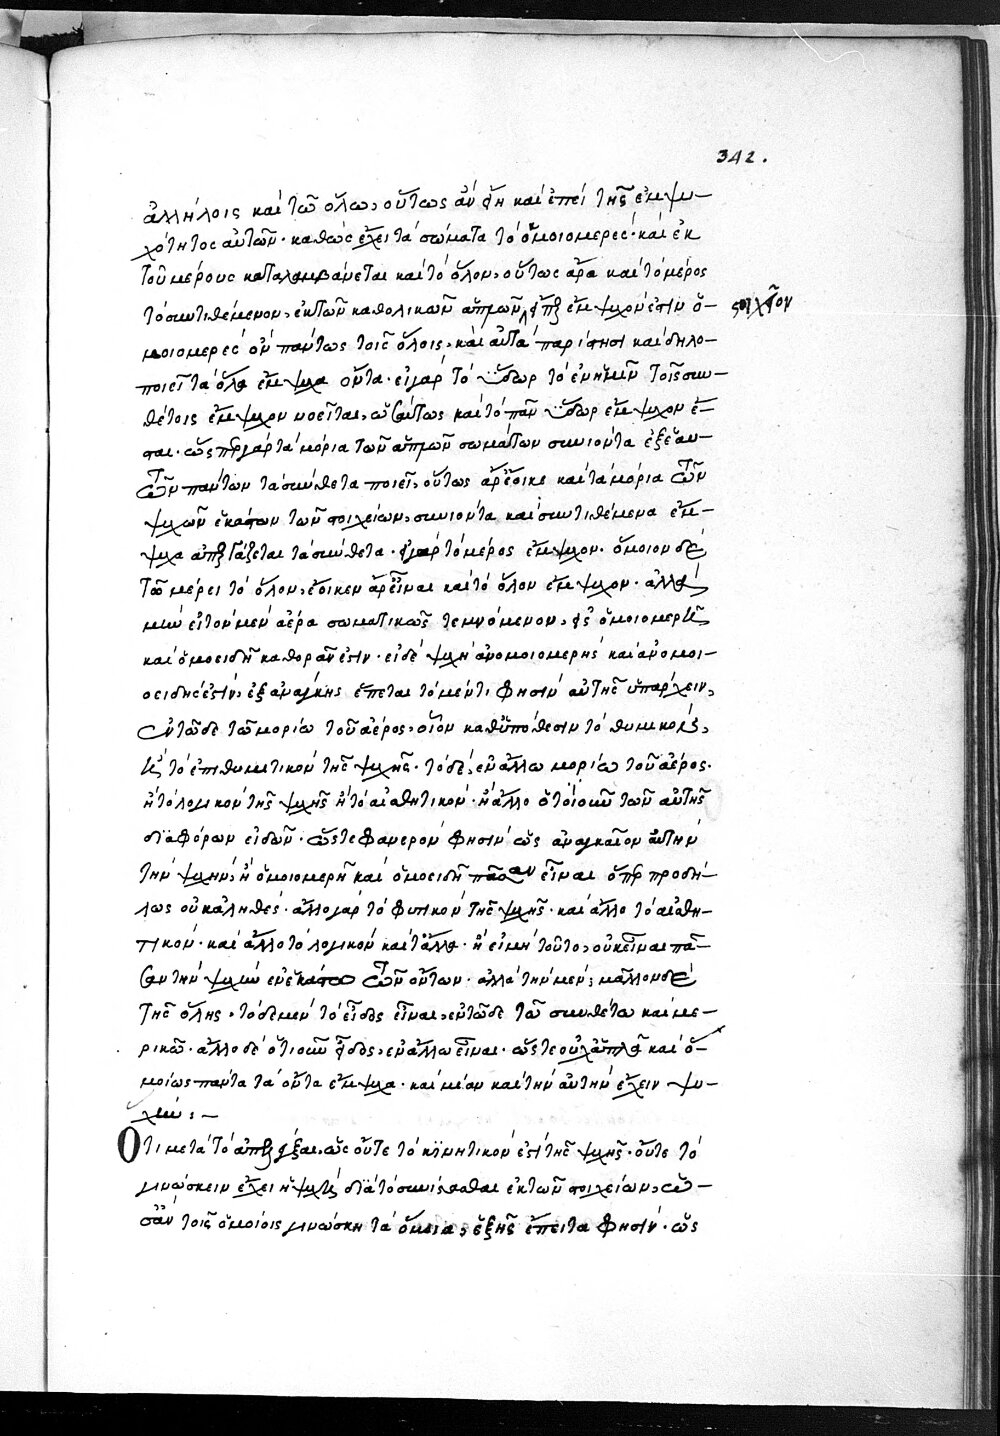 342.
ἀλλήλοις καὶ τῶ ὅλω, οὕτως ἂν ἔη καὶ ἐπεὶ τῆς ἐμψυ-
χότητος αὐτῶν. καθὼς ἔχει τὰ σώματα τὸ ὁμοιομερές. καὶ ἐκ
τοῦ μέρους καταλαμβάνεται καὶ τὸ ὅλον, οὕτως ἄρα καὶ τὸ μέρος
τὸ συντιθέμενον, ἐκ τῶν καθολικῶν ἁπλῶν, ἔμψυχόν ἐστιν ὁ-
στοιχείων
μοιομερὲς ὂν πάντως τοῖς ὅλοις, καὶ αὐτὰ παρίστησι καὶ δηλο-
ποιεῖ τὰ ὅλα ἔμψυχα ὄντα. εἰ γὰρ τὸ ὕδωρ τὸ ἐν ἡμῖν τοῖς συν-
θέτοις ἔμψυχον νοεῖται, ὡσαύτως καὶ τὸ πᾶν ὕδωρ ἔμψυχον ἔ-
σται. ὥσπερ γὰρ τὰ μόρια τῶν ἁπλῶν σωμάτων συνιόντα ἐξ ἑαυ-
τῶν πάντων τὰ σύνθετα ποιεῖ, οὕτως ἄρ' ἔοικε καὶ τὰ μόρια τῶν
ψυχῶν ἑκάστων τῶν στοιχείων, συνιόντα καὶ συντιθέμενα ἔμ-
ψυχα ἀπεργάζεται τὰ σύνθετα. εἰ γὰρ τὸ μέρος ἔμψυχον. ὅμοιον δὲ
τῶ μέρει τὸ ὅλον, ἔοικεν ἄρ' εἶναι καὶ τὸ ὅλον ἔμψυχον. ἀλλὰ
μὴν εἰ τὸν μὲν ἀέρα σωματικῶς τεμνόμενον, ὁμοιομερῆ
καὶ ὁμοειδῆ καθορᾶν ἐστιν. εἰ δὲ ψυχὴ ἀνομοιομερὴς καὶ ἀνομοι-
οειδής ἐστιν, ἐξ ἀνάγκης ἕπεται τὸ μέν τι φησὶν αὐτῆς ὑπάρχειν,
ἐν τῶδε τῶ μορίω τοῦ ἀέρος, οἷον καθ' ὑπόθεσιν τὸ θυμικὸν,
καὶ τὸ ἐπιθυμητικὸν τῆς ψυχῆς. τὸ δὲ, ἐν ἄλλω μορίω τοῦ ἀέρος.
ἢ τὸ λογικὸν τῆς ψυχῆς ἢ τὸ αἰσθητικόν. ἢ ἄλλο ὁτιοῦν τῶν αὐτῆς
διαφόρων εἰδῶν. ὥστε φανερὸν φησὶν ὡς ἀναγκαῖον αὐτὴν
τὴν ψυχὴν, ἢ ὁμοιομερῆ καὶ ὁμοειδῆ πᾶσαν εἶναι ὅπερ προδή-
λως οὐκ ἀληθές. ἄλλο γὰρ τὸ φυτικὸν τῆς ψυχῆς. καὶ ἄλλο τὸ αἰσθη-
τικόν. καὶ ἄλλο τὸ λογικὸν καὶ τἄλλα. ἢ εἰ μὴ τοῦτο, οὐκ εἶναι πᾶ-
σαν τὴν ψυχὴν ἐν ἑκάστω τῶν ὄντων. ἀλλὰ τὴν μὲν, μᾶλλον δὲ
τῆς ὅλης, τὸδε μὲν τὸ εἶδος εἶναι, ἐν τῶδε τῶ συνθέτω καὶ με-
ρικῶ. ἄλλο δὲ ὁτιοῦν εἶδος, ἐν ἄλλω εἶναι. ὥστε οὐχ ἁπλᾶ καὶ ὁ-
μοίως πάντα τὰ ὄντα ἔμψυχα. καὶ μίαν καὶ τὴν αὐτὴν ἔχειν ψυ-
χήν: —
Ὅτι μετὰ τὸ ἀποδεῖξαι, ὡς οὔτε τὸ κινητικόν ἐστι τῆς ψυχῆς. οὔτε τὸ
γινώσκειν ἔχει ἡ ψυχὴ διὰ τὸ συνίστασθαι ἐκ τῶν στοιχείων, ὡ-
σὰν τοῖς ὁμοίοις γινώσκη τὰ ὅμοια, ἑξῆς ἔπειτα φησίν. ὡς